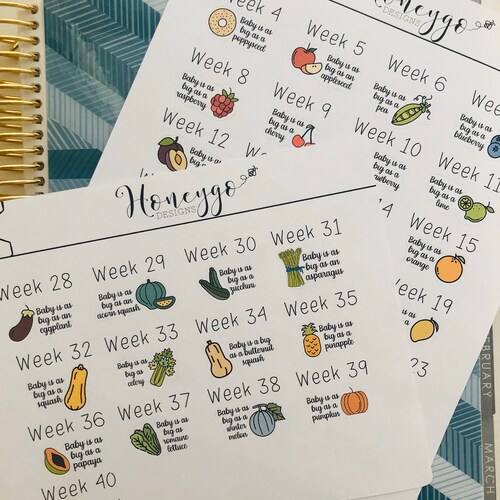 Honeygo
DESIGNS
Week 4
Baby is as
big as a
poppyseed
Week 5
Baby is as
big as an
appleseed
Week 6
Baby is as
big as a
pea
Week 8
Baby is as
big as a
raspberry
Week 9
Baby is as
big as a
cherry
Week 10
Week 11
Baby is as
big as a
lime
Week 12
Week 15
Baby is as
big as a
orange
19
23
FEBRUARY
MARCH
Honeygo
DESIGNS
Week 28
Baby is as
big an
eggplant
Week 29
Baby is as
big as an
acorn squash
Week 30
Baby is as
big as a
zucchini
Week 31
Baby is as
big as an
asparagus
Week 32
Baby is as
big as a
squash
Week 33
Baby is as
big as
celery
Week 34
Baby is a big
as a butternut
squash
Week 35
Baby is as
big as a
pinapple
Week 36
Baby is as
big as a
papaya
Week 37
Baby is as
big as
romaine
lettuce
Week 38
Baby is as
big as a
winter
melon
Week 39
Baby is as
big as a
pumpkin
Week 40